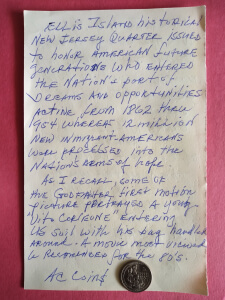 ELLIS ISLAND historical
NEW JERSEY QUARTER ISSUED
to honor AMERICAN future
GENERATIONS WHO ENTERED
the NATION'S port of
DREAMS AND OPPORTUNITIES
ACTIVE FROM 1862 thru
1954 WHEREAS 12 million
NEW immigrant AMERICANS
were processed into the
NATION'S of hope
AS I RECALL, some of
the GODFATHER first motion
picture portrayed A young
Vito CORLEONE ENTERING
US soil with his bag
around. A movie most viewed
& Recommended for the 80's.
AC Coins